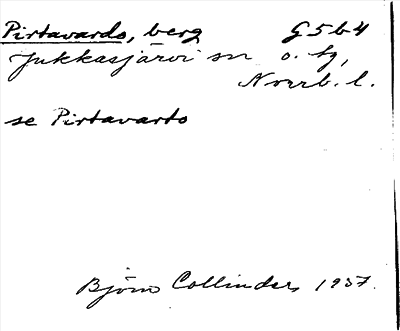 Pirtavardo, berg G5b4
Jukkasjärvi sn o. tg,
Norrb. l.
se Pirtavarto
Björn Collinder 1937.